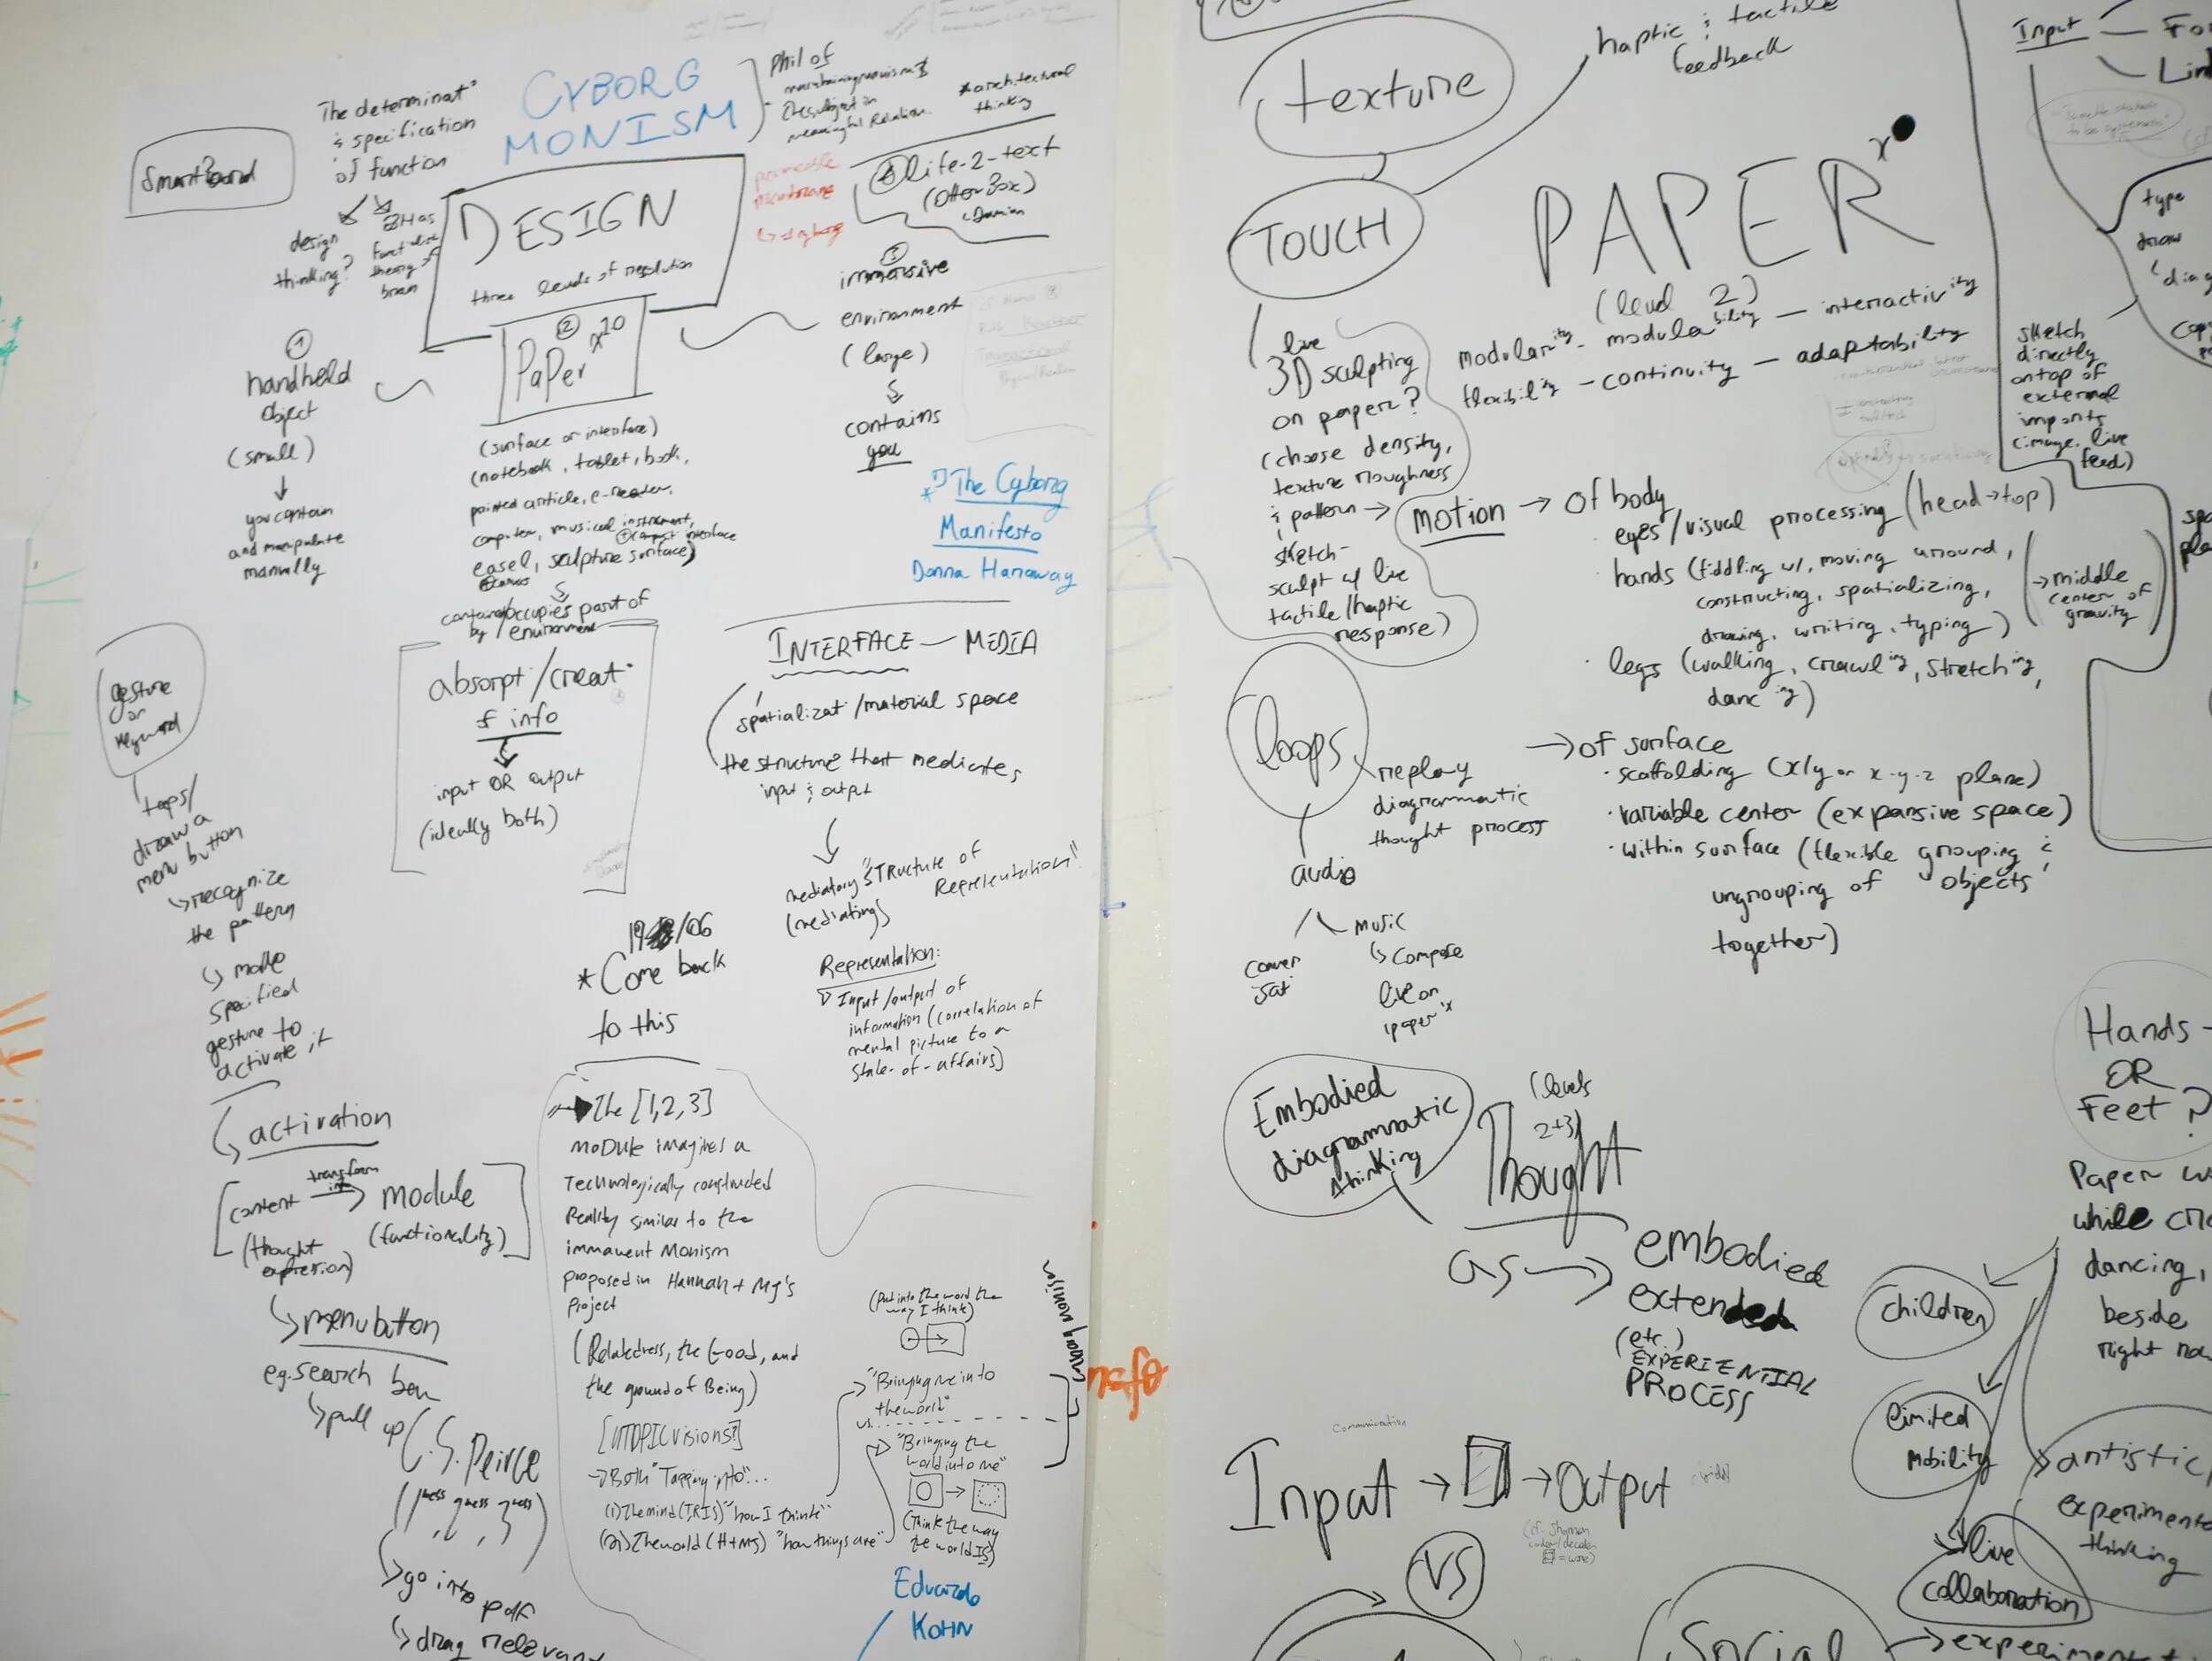 CYBORG
MONISM
Phil of
meaningful relation.
*architectural
thinking
The determinat°
& specification
of function
SmartBoard
design
thinking?
theory of
brain
DESIGN
three levels of resolution
permeable
membrane
↳ cyborg
life-2-text
(Otter Box)
↳ Damian
② PaPer x10
①
handheld
object
(small)
↓
you contain
and manipulate
manually
③
immersive
environment
(large)
contains
you
(surface or interface)
(notebook, tablet, book,
printed article, e-reader,
computer, musical instrument,
easel, sculpture surface)
occupies part of
environment
The Cyborg
Manifesto
Donna Haraway
absorpt°/creat°
of info
input OR output
(ideally both)
INTERFACE — MEDIA
spatializat°/material space
the structure that mediates
input & output
mediatory
(mediating)
"STRUCTURE of
Representation"
Representation:
Input/output of
information (correlation of
mental picture to a
state-of-affairs)
gesture
or
keyword
taps/
draw a
menu button
↳ recognize
the pattern
↳ make
specified
gesture to
activate it
↳ activation
content transform into → module
(thought
expression)
(functionality)
↳ menu button
eg. search bar
↳ pull up
C.S. Peirce
(1ness, 2ness, 3ness)
↳ go into pdf
↳ drag relevant
/06
*Come back
to this
→ The [1,2,3]
MODULE imagines a
Technologically constructed
Reality similar to the
immanent Monism
proposed in Hannah + MJ's
Project
(Relatedness, the Good, and
the ground of Being)
[UTOPIC visions?]
→ Both "Tapping into"...
(1) The mind (IRIS) "how I think"
(2) The world (H+MJ) "how things are"
(Put into the world the
way I think)
"Bringing me into
the world"
vs.
"Bringing the
world into me"
(Think the way
the world IS)
cyborg monism
Eduardo
KOHN
texture
haptic & tactile
feedback
TOUCH
PAPER x
(level 2)
modularity - modulability — interactivity
flexibility — continuity — adaptability
live
3D sculpting
on paper?
(choose density,
texture roughness
& pattern →
sketch-
sculpt w/ live
tactile/haptic
response)
MOTION → of body
· eyes/visual processing (head → top)
· hands (fiddling w/, moving around,
constructing, spatializing,
drawing, writing, typing)
(→ middle
center of
gravity)
· legs (walking, crawling, stretching,
dancing)
→ of surface
· scaffolding (x/y or x-y-z plane)
· variable center (expansive space)
· within surface (flexible grouping &
ungrouping of objects
together)
loops
replay
diagrammatic
thought process
audio
conver
sat°
music
↳ compose
live on
'paper'x
Input — Fo
Lin
type
draw
diag
copy
sketch
directly
on top of
external
imports
(image, live
feed)
spa
pla
Embodied
diagrammatic
thinking
(levels
2+3)
Thought
as → embodied
extended
(etc.)
EXPERIENTIAL
PROCESS
Communication
Input → → Output
VS
Social
Hands-
OR
Feet?
Paper w
while cra
dancing,
beside
right no
children
limited
mobility
live
collaboration
artistic/
experimental
thinking
→ experiment